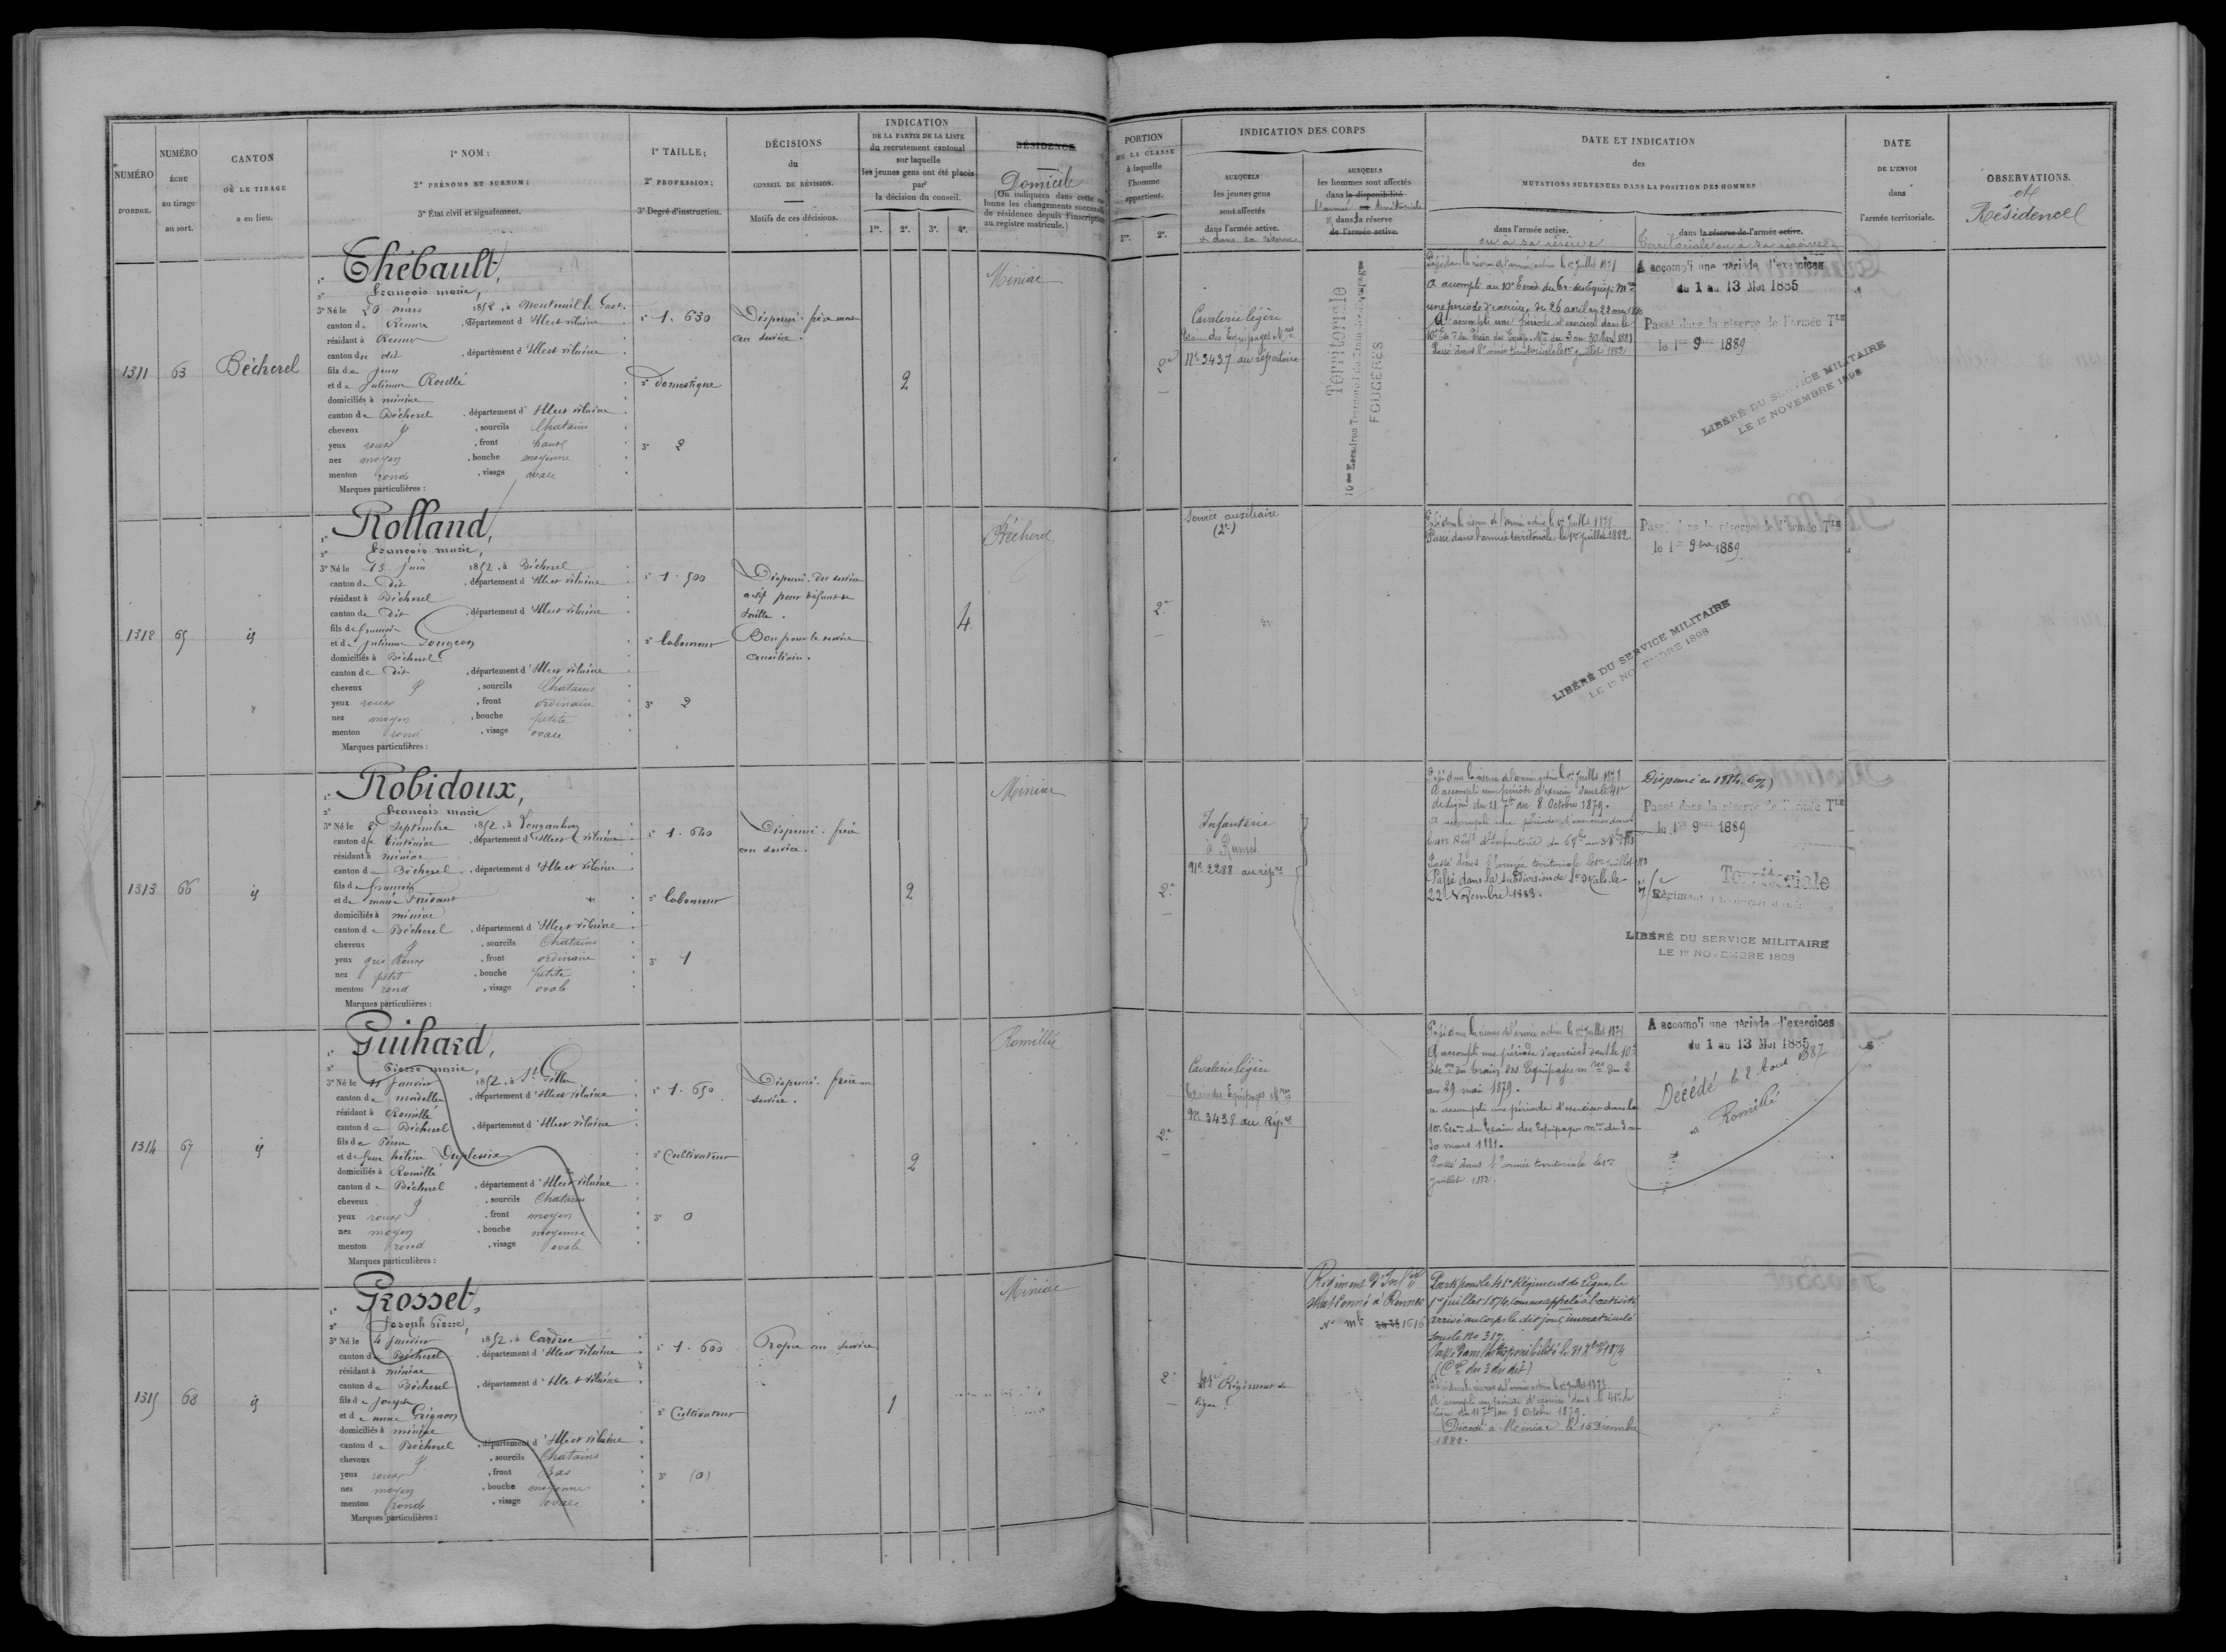 NUMÉRO
D'ORDRE.
NUMÉRO
ÉCHU
au tirage
au sort.
CANTON
OÙ LE TIRAGE
a eu lieu.
1° NOM ;
2° PRÉNOMS ET SURNOM ;
3° État civil et signalement.
1° TAILLE ;
2° PROFESSION ;
3° Degré d'instruction.
DÉCISIONS
du
CONSEIL DE RÉVISION.
Motifs de ces décisions.
INDICATION
DE LA PARTIE DE LA LISTE
du recrutement cantonal
sur laquelle
les jeunes gens ont été placés
par
la décision du conseil.
1re. 2e. 3e. 4e.
RÉSIDENCE
Domicile
(On indiquera dans cette co
lonne les changements successifs
de résidence depuis l'inscription
au registre matricule.)
PORTION
DE LA CLASSE
à laquelle
l'homme
appartient.
1re. 2e.
INDICATION DES CORPS
AUXQUELS
les jeunes gens
sont affectés
dans l'armée active.
et dans sa réserve
AUXQUELS
les hommes sont affectés
dans la disponibilité
l'armée ou territoriale
et dans sa réserve
de l'armée active.
DATE ET INDICATION
des
MUTATIONS SURVENUES DANS LA POSITION DES HOMMES
dans l'armée active.
ou à sa réserve
dans la réserve de l'armée active.
Territoriale ou à sa réserve
DATE
DE L'ENVOI
dans
l'armée territoriale.
OBSERVATIONS.
et
Résidence
1311
63
Bécherel
1° Thébault,
2° François marie,
3° Né le 20 mars 1852, à Montreuil le Gast
canton de Rennes, département d'Ille et vilaine
résidant à Rennes
canton du dit, département d'Ille et vilaine
fils de Jean
et de Julienne Rouillé
domiciliés à miniac
canton de Bécherel, département d'Ille et vilaine
cheveux, sourcils Chatains
yeux roux, front haut
nez moyen, bouche moyenne
menton rond, visage ovale
Marques particulières :
1° 1.630
2° Domestique
3° 2
Dispensé. frère
au service.
2
Miniac
2e
Cavalerie légère
Train des Equipages Mres
No 3437 au répertoire
Territoriale
10me Escadron Territorial du Train des Equipages
FOUGÈRES
Passé dans la réserve de l'armée active le 1er Juillet 1878
A accompli au 10e Escad. du Tr. des Equip. Mres
une période d'exercices, du 26 avril au 22 mai 1880
A accompli une période d'exercices dans le
10e Esc. du Train des Equip. Mres du 3 au 30 Mars 1881
Passé dans l'armée territoriale le 1er juillet 1882
A accompli une période d'exercices
du 1 au 13 Mai 1885
Passé dans la réserve de l'armée TLE
le 1er 9bre 1889
LIBÉRÉ DU SERVICE MILITAIRE
LE 1er NOVEMBRE 1898
1312
65
id
1° Rolland,
2° François marie,
3° Né le 15 Juin 1852, à Bécherel
canton de dit, département d'Ille et vilaine
résidant à Bécherel
canton de dit, département d'Ille et vilaine
fils de francois
et de Julienne Gougeon
domiciliés à Bécherel
canton de dit, département d'Ille et vilaine
cheveux, sourcils Chatains
yeux roux, front ordinaire
nez moyen, bouche petite
menton rond, visage ovale
Marques particulières :
1° 1.500
2° laboureur
3° 2
Dispensé. du service
actif pour défaut de
taille.
Bon pour le service
auxiliaire.
4
Bécherel
2e
Service auxiliaire
(2e)
Passé dans la réserve de l'armée active le 1er Juillet 1878
Passé dans l'armée territoriale, le 1er juillet 1882
Passé dans la réserve de l'armée TLE
le 1er 9bre 1889
LIBÉRÉ DU SERVICE MILITAIRE
LE 1er NOVEMBRE 1898
1313
66
id
1° Robidoux,
2° François marie
3° Né le 8 Septembre 1852, à Longaulnay
canton de Tinténiac, département d'Ille et vilaine
résidant à miniac
canton de Bécherel, département d'Ille et vilaine
fils de francois
et de marie
domiciliés à miniac
canton de Bécherel, département d'Ille et vilaine
cheveux, sourcils Chatains
yeux gris Roux, front ordinaire
nez petit, bouche petite
menton rond, visage ovale
Marques particulières :
1° 1.640
2° laboureur
3° 1
Dispensé. frère
au service.
2
Miniac
2e
Infanterie
à Rennes
No 2288 au rép.re
Passé dans la réserve de l'armée active le 1er Juillet 1878
A accompli une période d'exercices dans le 41e
de Ligne du 11 7bre au 8 Octobre 1879.
A accompli une période d'exercices dans
Passé dans l'armée territoriale le 1er juillet
Passé dans la subdivision de le
22 Novembre 1883.
Dispensé en 1884.
Passé dans la réserve de l'armée TLE
le 1er 9bre 1889
Territoriale
Régiment
LIBÉRÉ DU SERVICE MILITAIRE
LE 1er NOVEMBRE 1898
1314
67
id
1° Guihard,
2° Pierre marie,
3° Né le 11 Janvier 1852, à St Gilles
canton de mordelles, département d'Ille et vilaine
résidant à Romillé
canton de Bécherel, département d'Ille et vilaine
fils de Pierre
et de feue hélène Duplessix
domiciliés à Romillé
canton de Bécherel, département d'Ille et vilaine
cheveux, sourcils Chatains
yeux roux, front moyen
nez moyen, bouche moyenne
menton rond, visage ovale
Marques particulières :
1° 1.650
2° Cultivateur
3° 0
Dispensé. frère au
service.
2
Romillé
2e
Cavalerie légère
Train des Equipages Mres
No 3438 au Rép.re
Passé dans la réserve de l'armée active le 1er Juillet 1878
A accompli une période d'exercices dans le 10e
Esc.on du Train des Equipages mres du 2
au 29 mai 1879.
a accompli une période d'exercices dans le
10e Esc. du Train des Equipages mres du 3 au
30 mars 1881.
Passé dans l'armée territoriale le 1er
juillet 1882.
A accompli une période d'exercices
du 1 au 13 Mai 1885
Décédé le 2 Aout 1887
à Romillé
1315
68
id
1° Grosset,
2° Joseph Pierre,
3° Né le 4 Janvier 1852, à Cardroc
canton de Bécherel, département d'Ille et vilaine
résidant à miniac
canton de Bécherel, département d'Ille et vilaine
fils de Joseph
et de anne Grignon
domiciliés à miniac
canton de Bécherel, département d'Ille et vilaine
cheveux, sourcils Chatains
yeux roux, front Bas
nez moyen, bouche moyenne
menton rond, visage ovale
Marques particulières :
1° 1.600
2° Cultivateur
3° (0)
Propre au service
1
Miniac
2e
41e Régiment de
ligne.
Régiment d'Inf.rie
stationné à Rennes
No mle 1616
Parti pour le 41e Régiment de Ligne, le
1er juillet 1874, comme appelé à l'activité
arrivé au Corps le dit jour, immatriculé
sous le No 317.
Passé dans la disponibilité le 31 8bre 1874
(Cre du 3 du dit)
Passé dans la réserve de l'armée active le 1er juillet 1878
A accompli une période d'exercices dans le 41e de
Ligne du 11 7bre au 8 Octobre 1879.
Décédé à Miniac le 15 Décembre
1880.